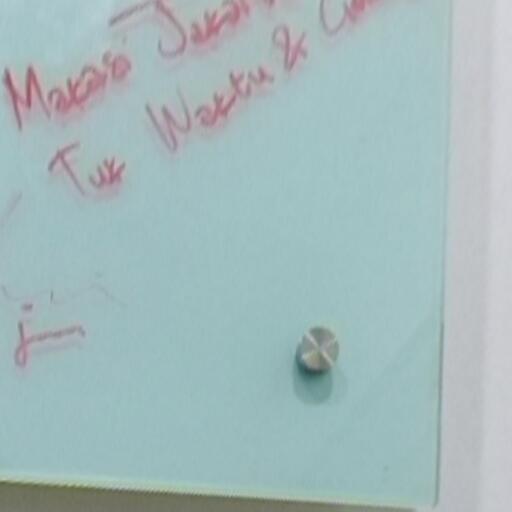 Makas Jakar
Tuk Waktu &
j